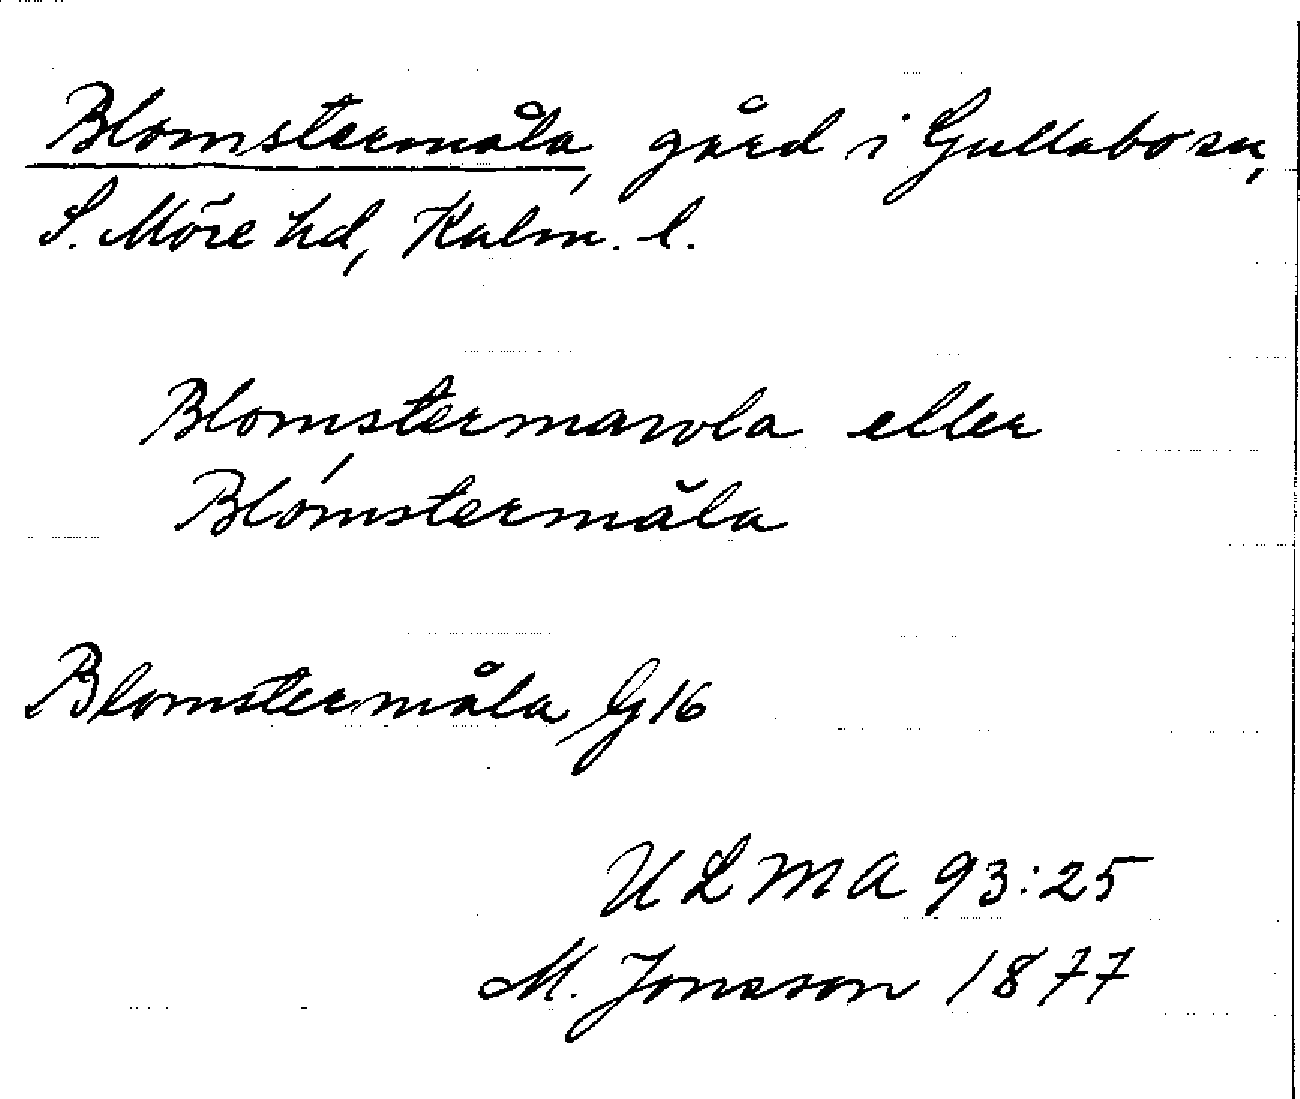 Blomstermåla, gård i Gullabo sn,
S. Möre hd, Kalm. l.
Blomstermawla eller
Blómstermăla
Blomstermåla G16
ULMA 93:25
M. Jonsson 1877